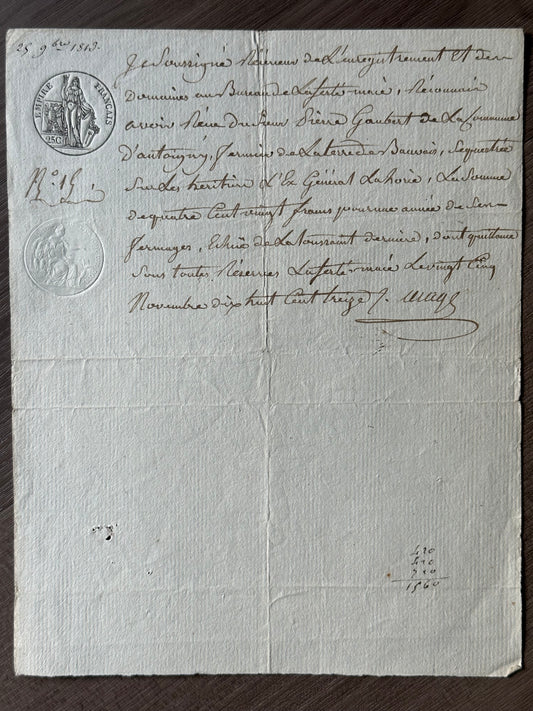 25 9bre 1813.
EMPIRE FRANÇAIS
25C
N.o 15
Je Soussigné Receveur de L'enregistrement et des
Domaines au Bureau de Laferté-macé, Reconnais
avoir Recu du Sieur Pierre Gaubert de La Commune
D'antoigny, Fermier de La terre de Beauvais, Sequestrée
Sur Les heritiers L'Ex Général Lahorie, La Somme
de quatre Cent vingt francs pour une année de Ses
Fermages, Echue de La toussaint dernière, dont quittance
Sous toutes Réserves Laferté-macé Le vingt Cinq
Novembre dix huit Cent treize
420
420
720
1560